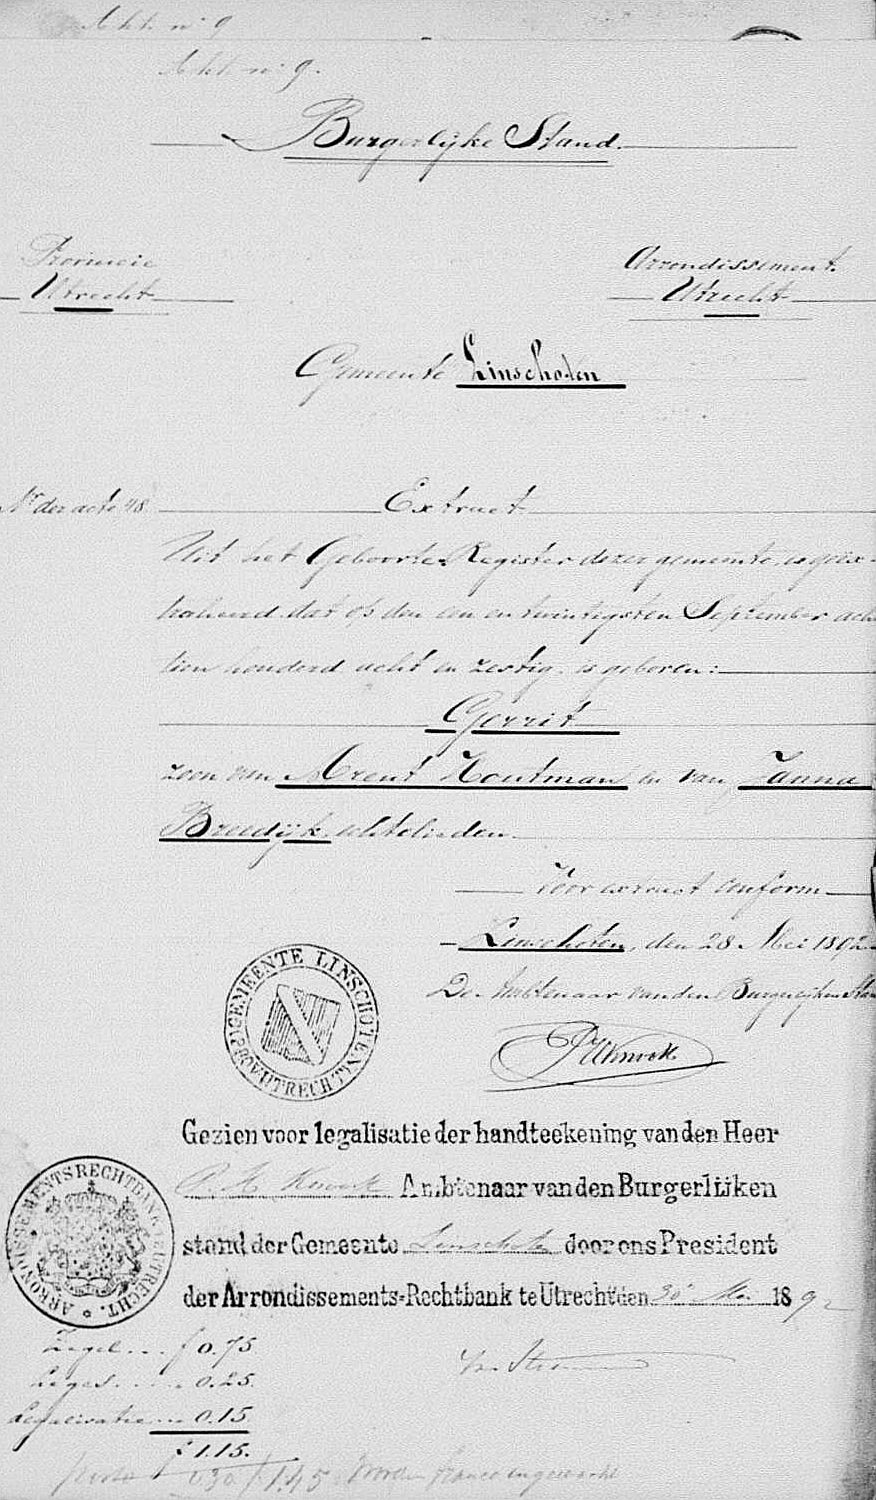 Akt. nº 9
Akt. nº 9.
Burgerlijke Stand.
Provincie
Utrecht
Arrondissement.
Utrecht
Gemeente Linschoten
Nr der acte 48. Extract
Uit het Geboorte-Register dezer gemeente, is geëx-
traheerd dat op den een en twintigsten September ach
tien honderd acht en zestig, is geboren:
Gerrit
zoon van Arent Houtman en van Janna
Breedijk, echtelieden.
Voor extract conform
Linschoten, den 28 Mei 1892
De Ambtenaar van den Burgerlijken Stan
GEMEENTE LINSCHOTEN UTRECHT
Gezien voor legalisatie der handteekening van den Heer
Ambtenaar van den Burgerlijken
stand der Gemeente Linschoten door ons President
der Arrondissements-Rechtbank te Utrecht den 30 Mei 1892
ARRONDISSEMENTS RECHTBANK UTRECHT.
Zegel... f 0.75
Leges..... 0.25.
Legalisatie... 0.15
f 1.15.
porto 0.30 / 1.45